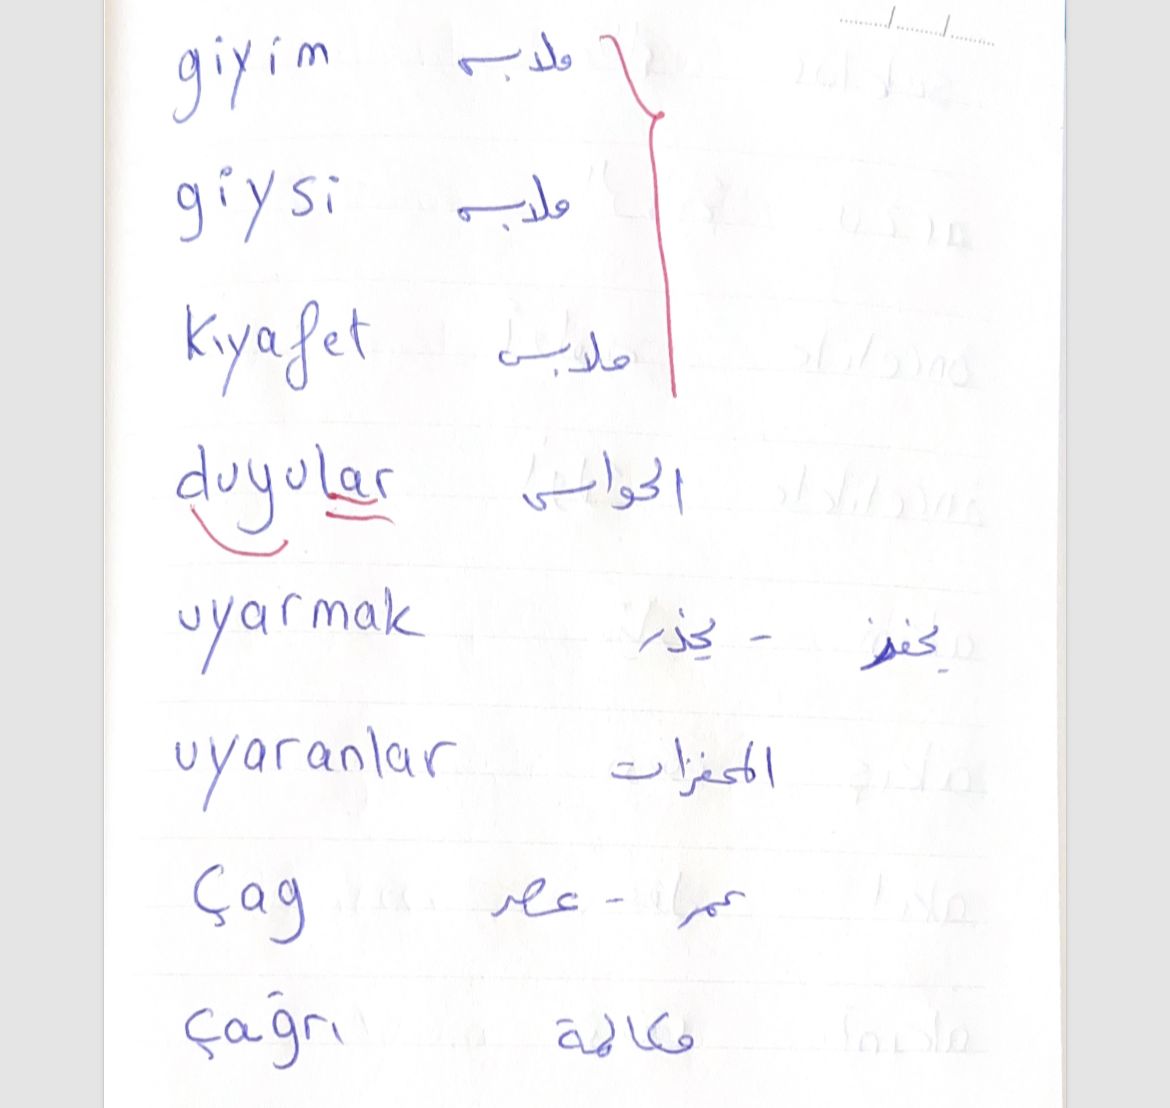 giyim ملابس
giysi ملابس
kıyafet ملابس
duyular الحواس
uyarmak يحفز - يحذر
uyaranlar المحفزات
Çag عمر - عصر
çağrı مكالمة